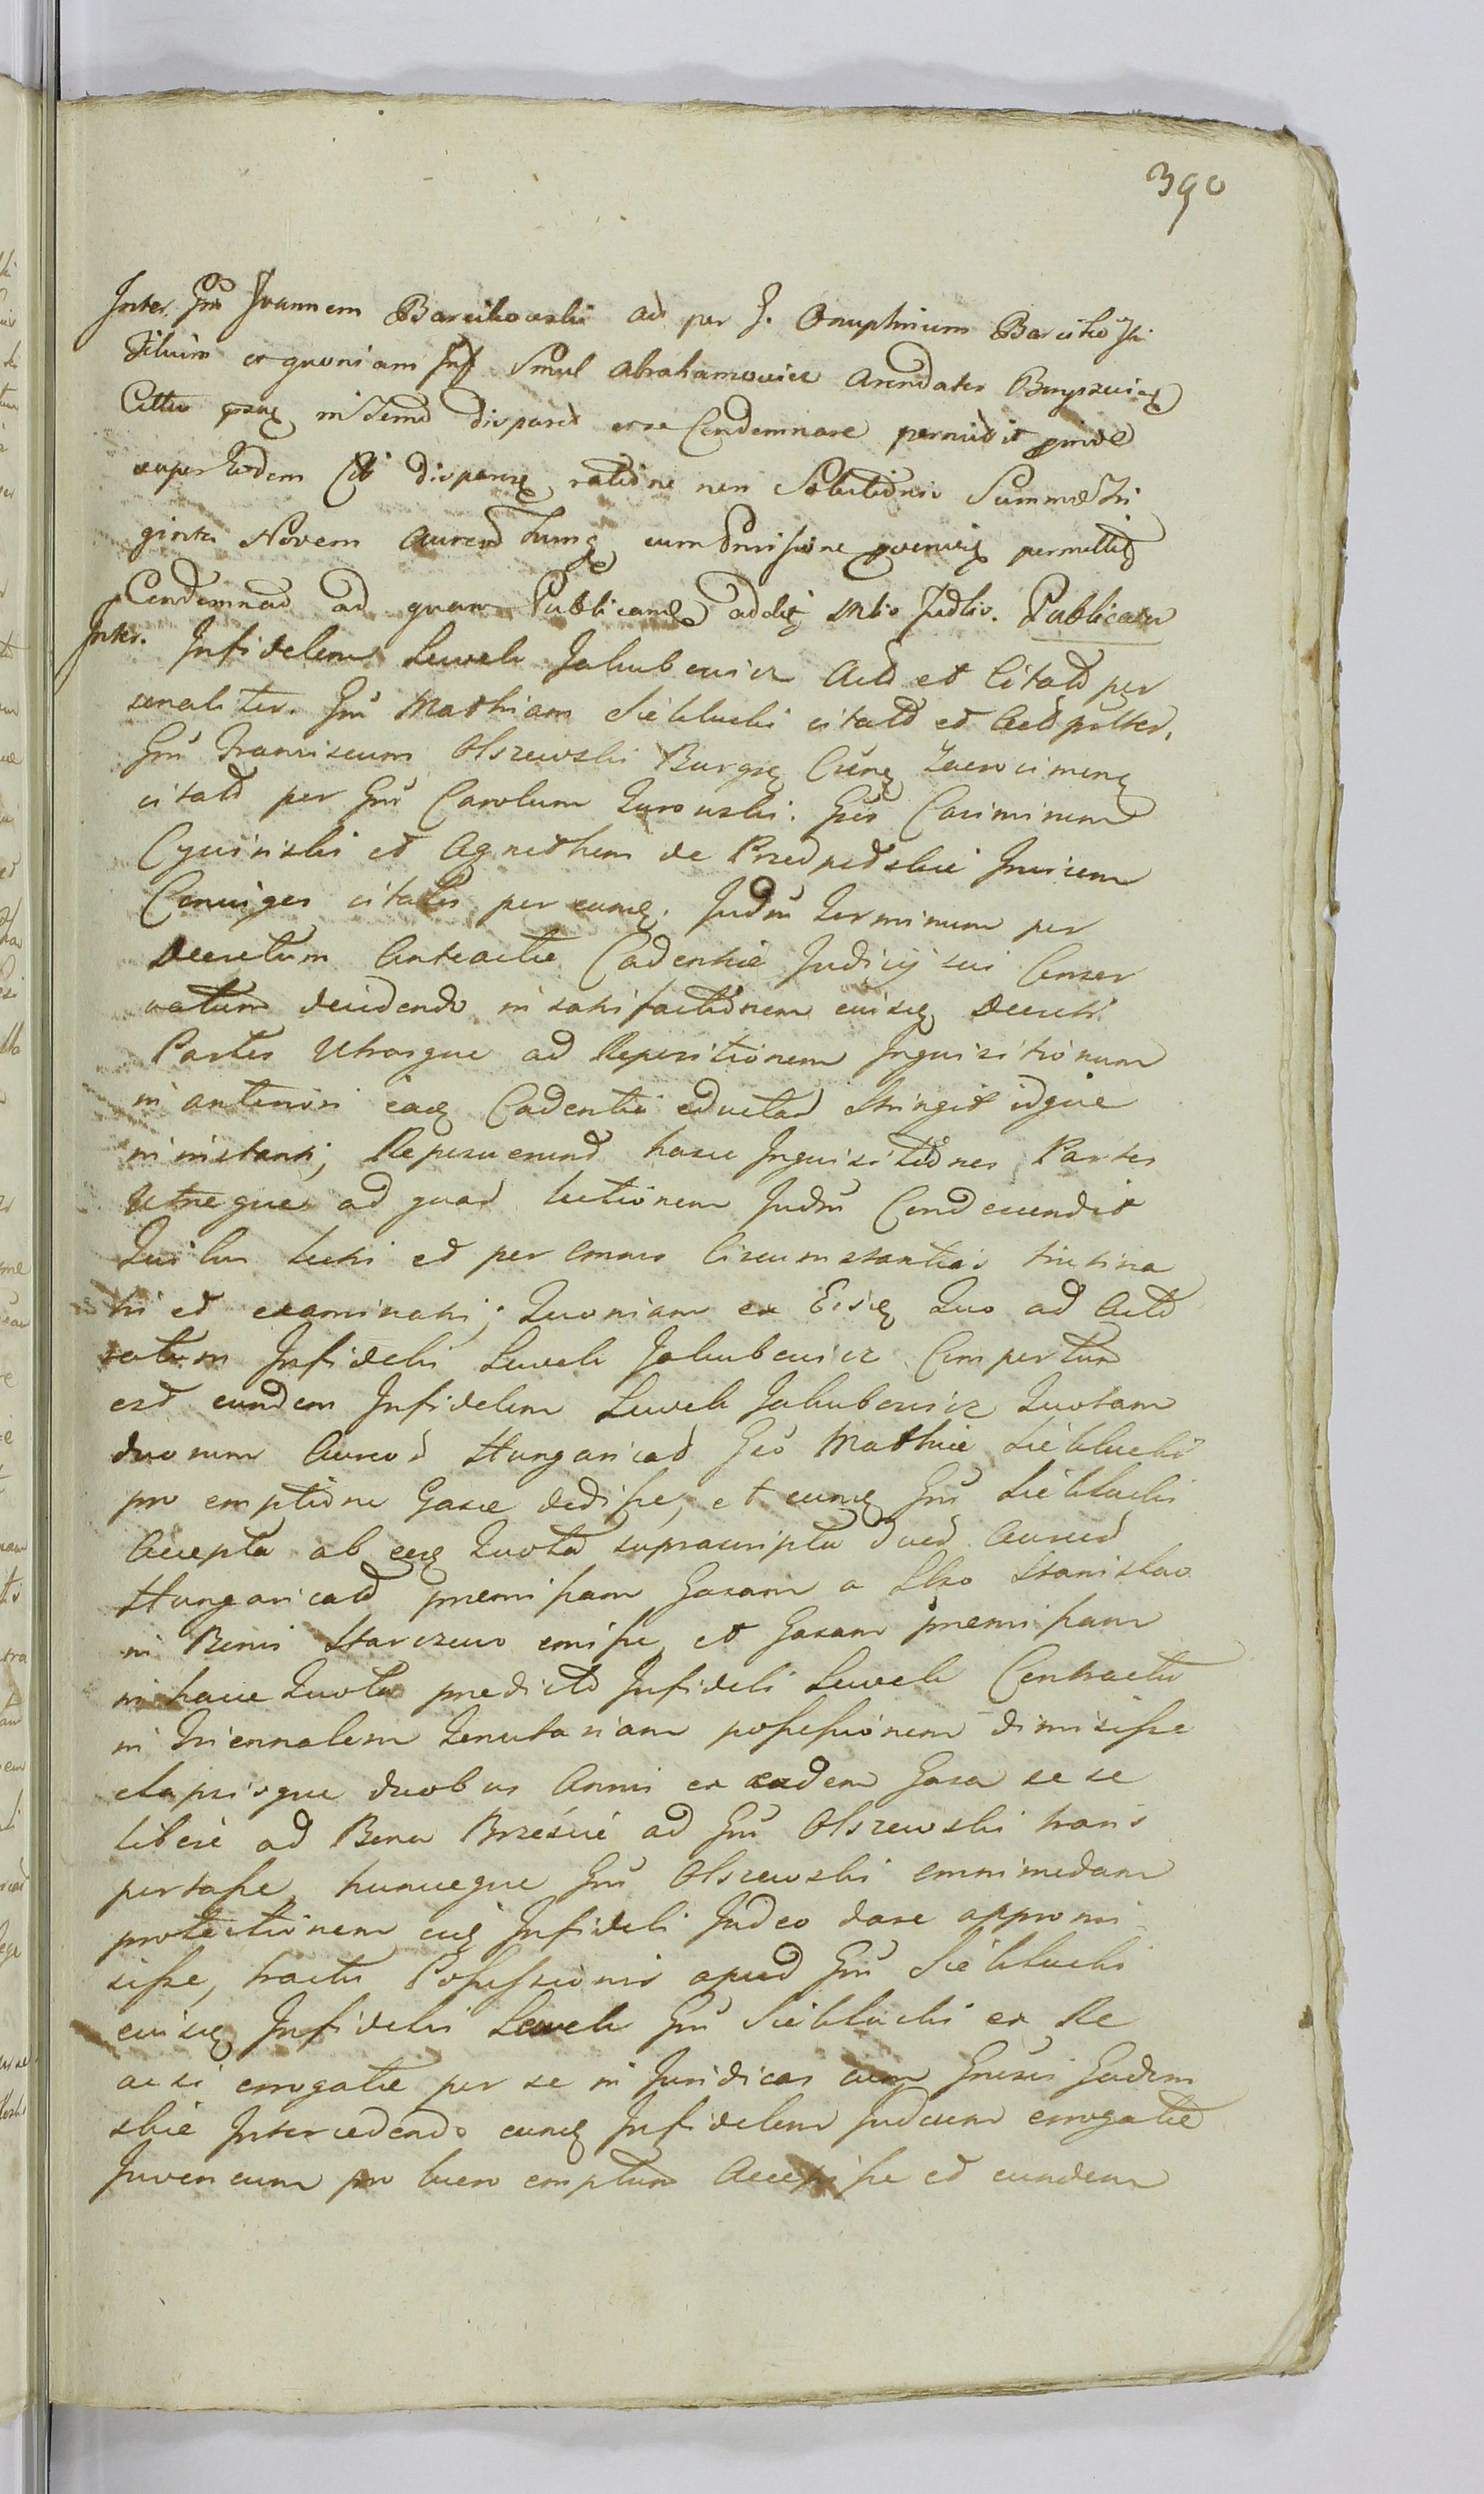 390
Inter Gnm Joannem Barcikowski ad per G. Onuphrium Barcikowski
Filium et quoniam Inf Smul Abrahamowicz Arendator
Citus in Termo disparet et se Condemnare permisit proinde
super eodem Cito disparen ratione non Solutionis Summae Tri
ginta Novem Aureor Hung cum permittit
Condemnad ad quam Publicand addit Publicata
Inter. Infidelem Lewek Jakubowicz Act et Citatd per
sonaliter. Gnm Mathiam Siekłucki citatd et Actd psltr.
Gnm Franciscum Olszewski Burg Zacrocimen
citatd per Gnm Carolum Zurowski. Gsos Casimirum
et Agnethem de Invicem
Conjuges citatos per eund. Judm Terminum per
Decretum Anteactae Cadentiae Judicij sui Conser
vatum decidendo in satisfactionem eiusd Decreti
Partes Utrasque ad Repositionem Inquisitionum
in anteriori ead Cadentia eductar Stringit idque
in instanti; Reposuerund hasce Inquisitiones Partes
Utreque ad quar lectionem Judm Condescendit
Quibus lectis et per omnes Circumstantias trutina
tis et examinatis; Quoniam ex Eisd Quo ad Actd
ratum Infidelis Lewek Jakubowicz Compertum
est eundem Infidelem Lewek Jakubowicz Quotam
duorum Aureor Hungaricad Gso Mathiae Siekłucki
pro emptione Gazae dedisse, et eund Gnm Siekłucki
Accepta ab eod Quota suprascripta duor Aureor
Hungaricad premissam Gazam a Stanislao
in Bonis Starczewo emisse et Gazam premissam
in hacce Quota predictd Infideli Lewek Contractu
in Triennalem Tenutariam possessionem dimisisse
elapsisque duobus Annis ex eadem Gaza se se
libere ad Bona Brzeście ad Gnm Olszewski trans
portasse, huncque Gnm Olszewski omnimodam
protectionem eid Infideli Judeo dare appromi
sisse, tractu Possessionis apud Gnm Siekłucki
eiusd Infidelis Lewek Gnm Siekłucki ex Re
ac si erogatae per se in Juridicas cum Gnosis
skie Intercedendo eund Infidelem Judeum erogatae
Juvencum pro lucro emptum Accepisse et eundem